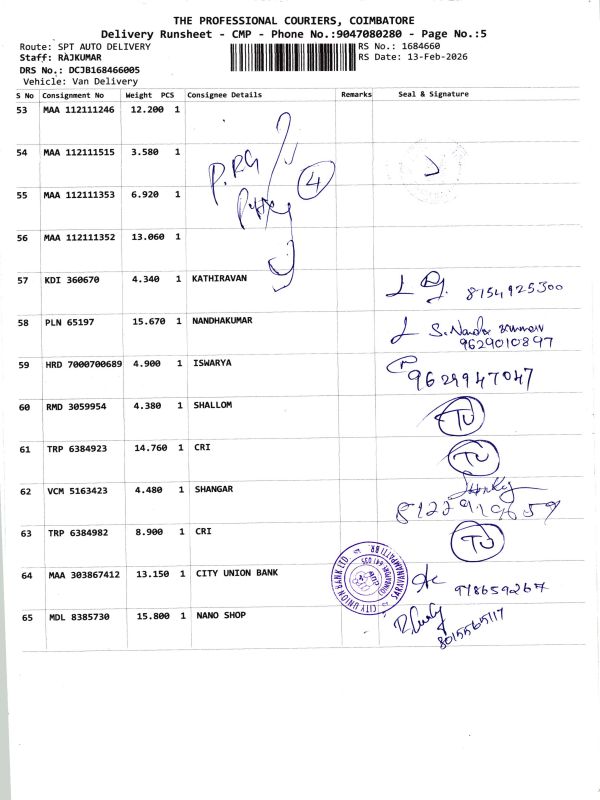 THE PROFESSIONAL COURIERS, COIMBATORE
Delivery Runsheet - CMP - Phone No.:9047080280 - Page No.:5
Route: SPT AUTO DELIVERY
RS No.: 1684660
Staff: RAJKUMAR
RS Date: 13-Feb-2026
DRS No.: DCJB168466005
Vehicle: Van Delivery
S No Consignment No Weight PCS Consignee Details Remarks Seal & Signature
53 MAA 112111246 12.200 1
54 MAA 112111515 3.580 1
P.RG
4
55 MAA 112111353 6.920 1
56 MAA 112111352 13.060 1
57 KDI 360670 4.340 1 KATHIRAVAN 8754925300
58 PLN 65197 15.670 1 NANDHAKUMAR S. Nandakumar
9629010897
59 HRD 7000700689 4.900 1 ISWARYA 9629947047
60 RMD 3059954 4.380 1 SHALLOM TU
61 TRP 6384923 14.760 1 CRI TU
62 VCM 5163423 4.480 1 SHANGAR
8122919659
63 TRP 6384982 8.900 1 CRI TU
64 MAA 303867412 13.150 1 CITY UNION BANK
CITY UNION BANK LTD. SARAVANAMPATTI BR.
978659267
65 MDL 8385730 15.800 1 NANO SHOP
8015565117